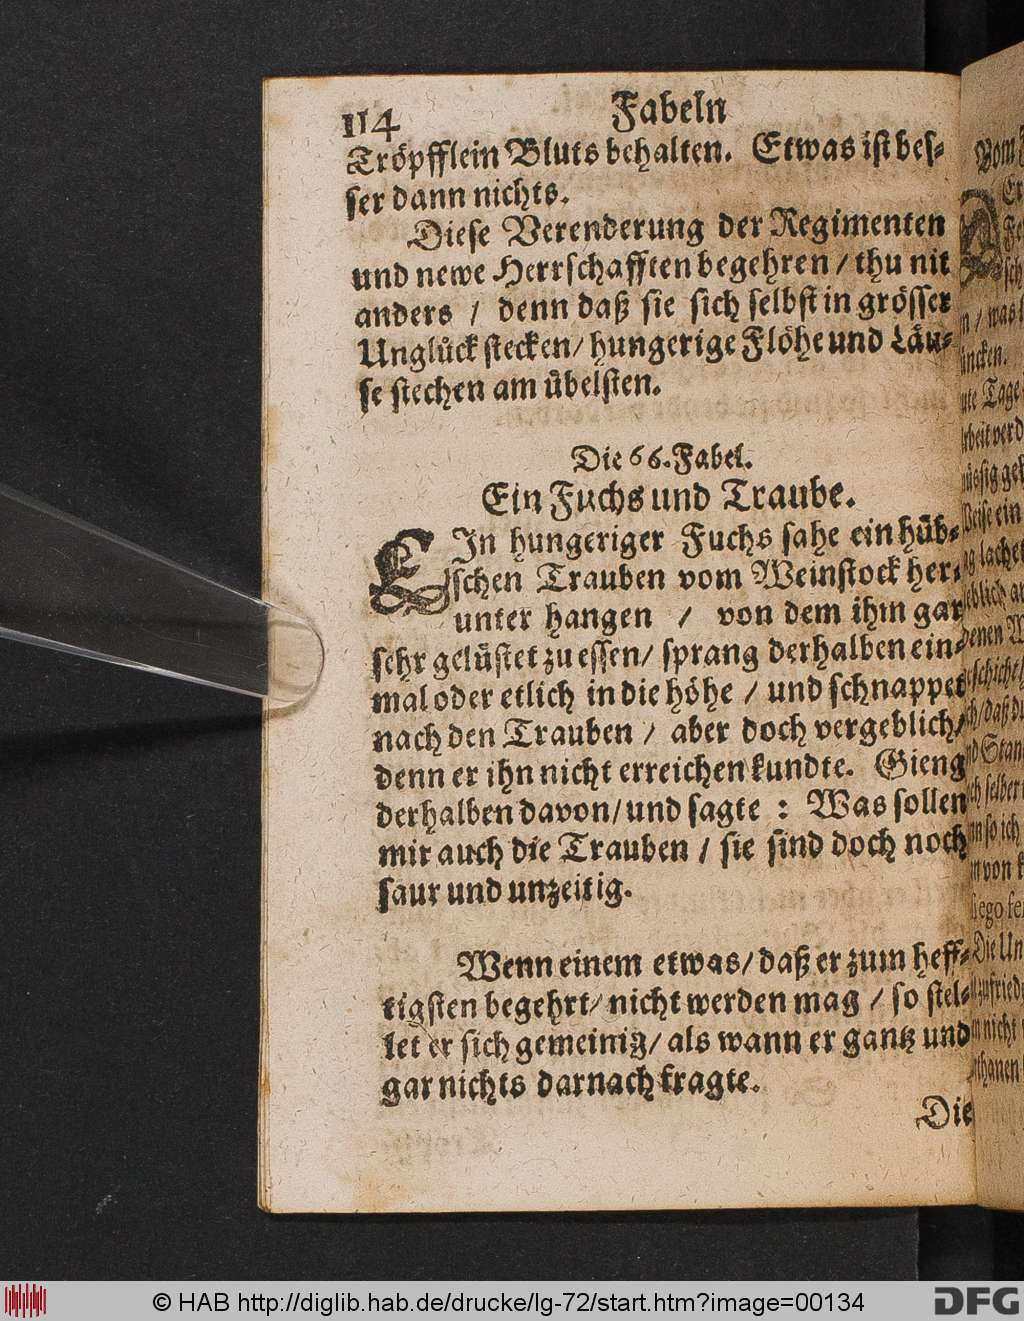 114 Fabeln
Tröpfflein Bluts behalten. Etwas ist bes-
ser dann nichts.
Diese Verenderung der Regimenten
und newe Herrschafften begehren / thu nit
anders / denn daß sie sich selbst in grösser
Unglück stecken / hungerige Flöhe und Läu-
se stechen am übelsten.
Die 66. Fabel.
Ein Fuchs und Traube.
EIn hungeriger Fuchs sahe ein hüb-
schen Trauben vom Weinstock her-
unter hangen / von dem ihm gar
sehr gelüstet zu essen / sprang derhalben ein-
mal oder etlich in die höhe / und schnappet
nach den Trauben / aber doch vergeblich /
denn er ihn nicht erreichen kundte. Gieng
derhalben davon / und sagte : Was sollen
mir auch die Trauben / sie sind doch noch
saur und unzeitig.
Wenn einem etwas / daß er zum heff-
tigsten begehrt / nicht werden mag / so stel-
let er sich gemeinig / als wann er gantz und
gar nichts darnach fragte.
Die
© HAB http://diglib.hab.de/drucke/lg-72/start.htm?image=00134
DFG